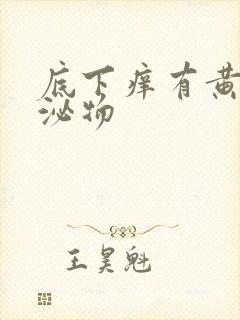 底下痒有黄
泌物
王昊魁